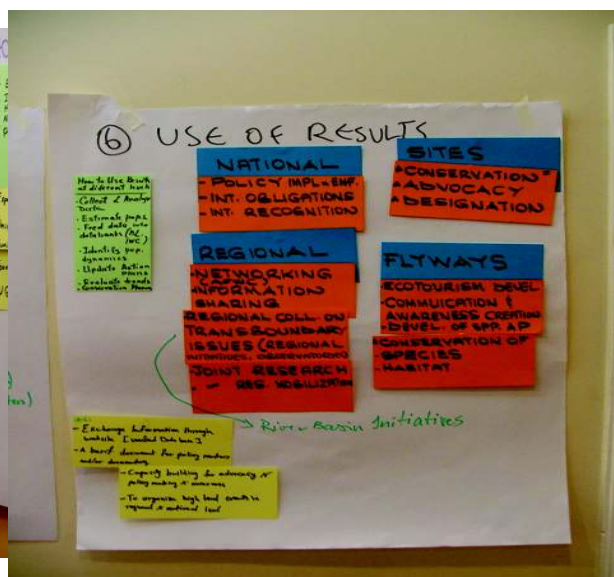 ⑥ USE OF RESULTS
How to Use Results
at different levels
- Collect & Analyse
Data
- Estimate pops
- Feed data into
databanks (NL,
IWC)
- Identify pop.
dynamics
- Update Action
Plans
- Evaluate trends
- Conservation
NATIONAL
- POLICY IMPL
- INT. OBLIGATIONS
- INT. RECOGNITION
SITES
CONSERVATION
ADVOCACY
DESIGNATION
REGIONAL
- NETWORKING
INFORMATION
SHARING
REGIONAL COLL. ON
TRANSBOUNDARY
ISSUES (REGIONAL
INITIATIVES, OBSERVATORIES)
JOINT RESEARCH
- " - RES. MOBILIZATION
FLYWAYS
- ECOTOURISM DEVEL
- COMMUICATION &
AWARENESS CREATION
- DEVEL. OF SPP. AP
CONSERVATION OF
SPECIES
- HABITAT
River Basin Initiatives
- Exchange Information through
website [ Data bases ]
- A brief document for policy makers
and/or
- Capacity building for advocacy &
policy making & awareness
- To organize high level events in
regional & national level